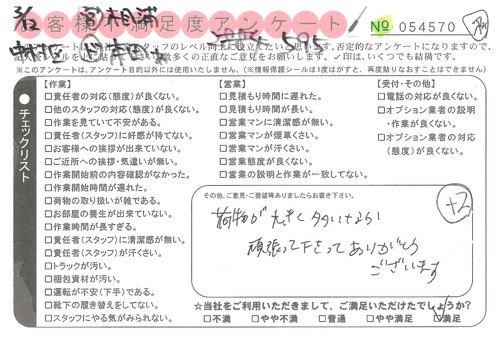 お客様満足度アンケート
№ 054570
スタッフのレベル向上に役立てたいと思います。否定的なアンケートになりますので、
数多くの正直なご意見をお願いします。✓印は、いくつでも結構です。
※このアンケートは、アンケート目的以外には使用いたしません。(※情報保護シールは1度はがすと、再度貼りなおすことはできません)
チェックリスト
【作業】
□責任者の対応(態度)が良くない。
□他のスタッフの対応(態度)が良くない。
□作業を見ていて不安がある。
□責任者(スタッフ)に好感が持てない。
□お客様への挨拶が出来ていない。
□ご近所への挨拶・気遣いが無い。
□作業開始前の内容確認がなかった。
□作業開始時間が遅れた。
□荷物の取り扱いが雑である。
□お部屋の養生が出来ていない。
□作業時間が長すぎる。
□責任者(スタッフ)に清潔感が無い。
□責任者(スタッフ)が汗くさい。
□トラックが汚い。
□梱包資材が汚い。
□運転が不安(下手)である。
□靴下の履き替えをしてない。
□スタッフにやる気がみられない。
【営業】
□見積もり時間に遅れた。
□見積もり時間が長い。
□営業マンに清潔感が無い。
□営業マンが煙草くさい。
□営業マンが汗くさい。
□営業態度が良くない。
□営業の説明と作業が一致してない。
【受付・その他】
□電話の対応が良くない。
□オプション業者の説明
・作業が良くない。
□オプション業者の対応
(態度)が良くない。
その他、ご意見・ご要望等ありましたらお書き下さい。
荷物が大きく
頑張って下さって ありがとう
ございます
+2
☆当社をご利用いただきまして、ご満足いただけたでしょうか?
□不満 □やや不満 □普通 □やや満足 ☑満足